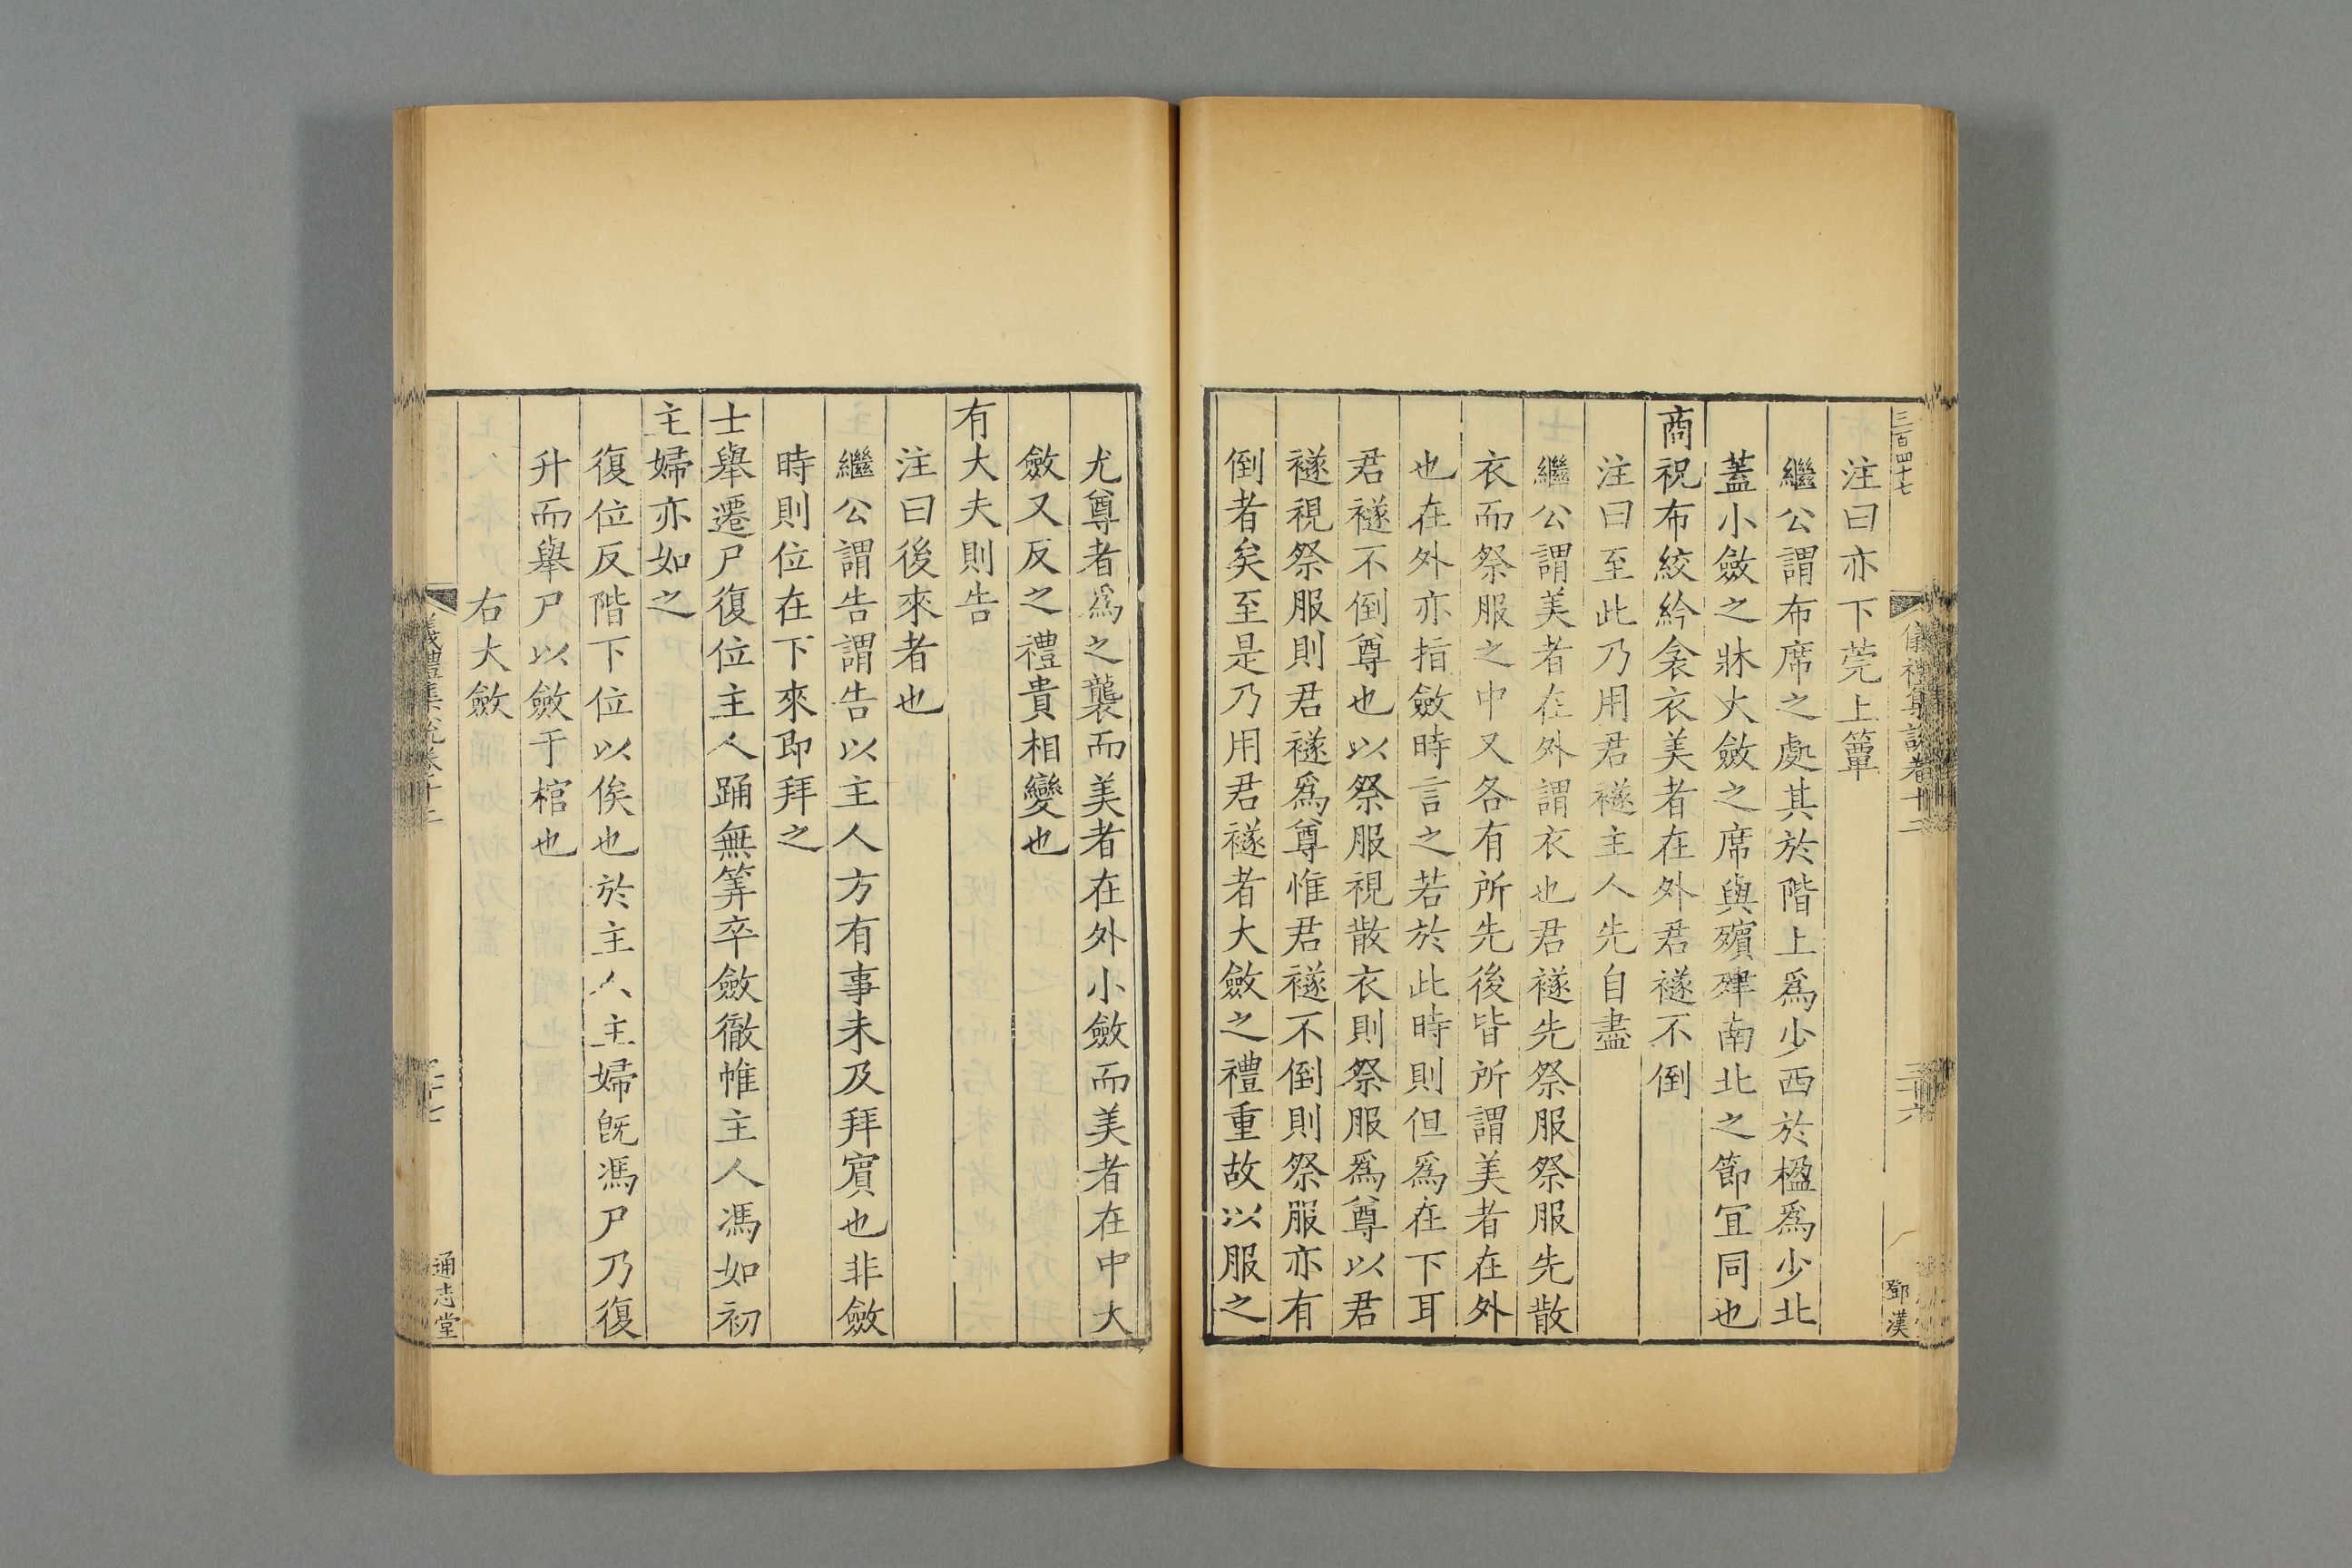 三百四十七
儀禮集說卷十二
三十六
鄧漢
注曰亦下莞上簟
繼公謂布席之處其於階上爲少西於楹爲少北
蓋小斂之牀大斂之席與殯肂南北之節宜同也
商祝布絞紟衾衣美者在外君襚不倒
注曰至此乃用君襚主人先自盡
繼公謂美者在外謂衣也君襚先祭服祭服先散
衣而祭服之中又各有所先後皆所謂美者在外
也在外亦指斂時言之若於此時則但爲在下耳
君襚不倒尊也以祭服視散衣則祭服爲尊以君
襚視祭服則君襚爲尊惟君襚不倒則祭服亦有
倒者矣至是乃用君襚者大斂之禮重故以服之
尤尊者爲之襲而美者在外小斂而美者在中大
斂又反之禮貴相變也
有大夫則告
注曰後來者也
繼公謂告謂告以主人方有事未及拜賓也非斂
時則位在下來即拜之
士舉遷尸復位主人踊無筭卒斂徹帷主人馮如初
主婦亦如之
復位反階下位以俟也於主人主婦旣馮尸乃復
升而舉尸以斂于棺也
右大斂
儀禮集說卷十二
三十七
通志堂